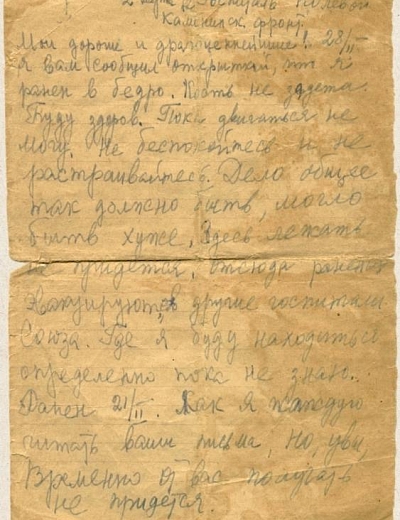 2 марта Госпиталь полевой
Каменинск. фронт
Мои дорогие и драгоценнейшие! 23/II
я вам сообщил открыткой, что я
ранен в бедро. Кость не задета.
Буду здоров. Пока двигаться не
могу. Не беспокойтесь и не
растраивайтесь. Дело общее
так должно быть, могло
быть хуже. Здесь лежать
не придется, отсюда раненых
эвакуируют в другие госпитали
Союза. Где я буду находиться
определенно пока не знаю.
Ранен 21/II. Как я жажду
читать ваши письма, но, увы,
Временно от вас получать
не придется.